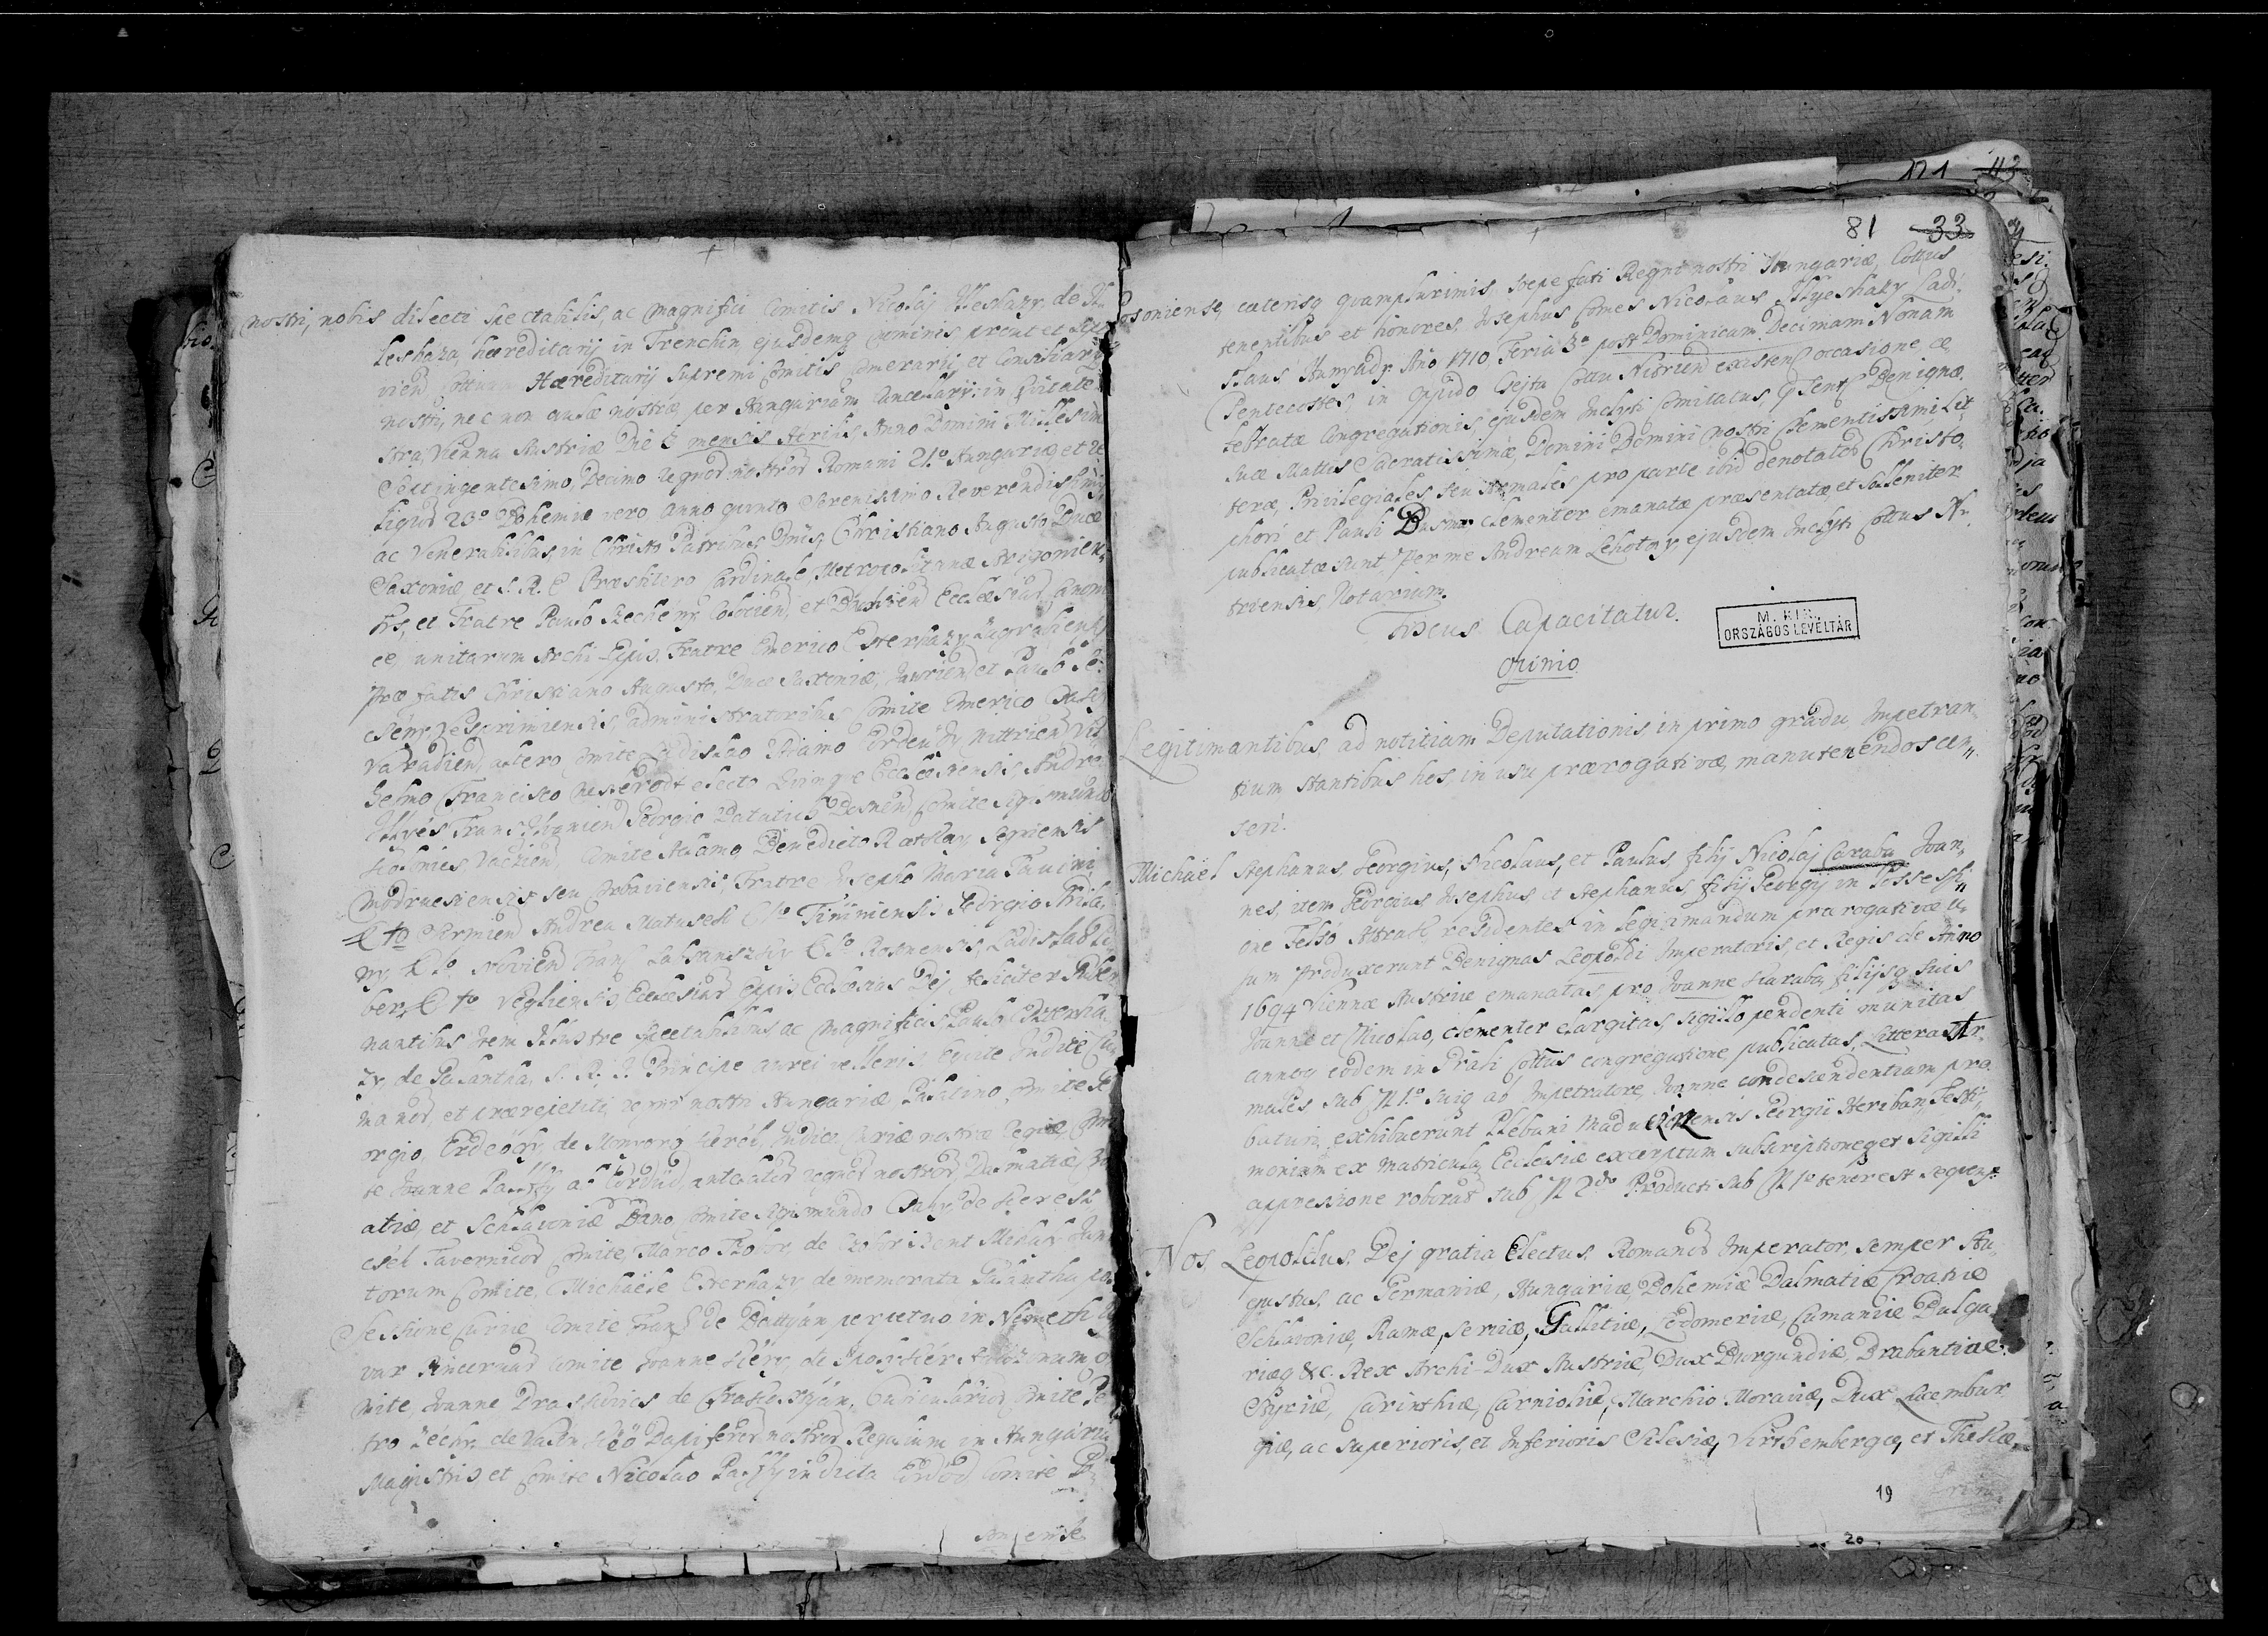 nostri, nobis dilecti Spectabilis, ac Magnifici Comitis Nicolaj Illeshazy de Il„
leshaza, hæreditarij in Trenchin ejusdemq Cominis prout et
Cottuum Hæreditarij Supremi Comitis Camerarij, et Consiliarij
nostri, nec non aulæ nostræ per Hungariam Cancellarij: in Civitate
Vienna Austriæ Die 3 mensis Aprilis Anno Domini Millesimo
Septingentesimo, Decimo Regnor nostror Romani 21.º Hungariæ, et re
liquor 23º Bohemiæ vero, anno quinto Serenissimo Reverendissimis
ac Venerabilibus, in Christo Patribus Dnis, Christiano Augusto Duce
Saxoniæ et S. R. E Præsbitero Cardinale, Metropolitanæ Strigonien„
sis, et Fratre Paulo Szecheny Colocien, et Ecclesiar canoni
ce, unitarum Archi-Eppis, Fratre Emerico Esterhazy Zagrabiens
Præfatis Christiano Augusto, Duce Saxoniæ, Jaurien, et Paulo Sze„
cseny Vesprimiensis, administratoribus Comite Emerico Csaky
Varadien, altero Comite Ladislao Adamo Erdeödy Nittrien
helmo Francisco Nesselrodt electo Quinque Ecclesiensis, Andrea
Georgio Patatich Bosnen, Comite Sigismundo
Kolonics Vaczien, Comite Adamo, Benedicto Ratkay, Segniensis
Modrusiensis seu Corbaviensis, Fratre Josepho Maria Favini
Elto Sirmien Andrea Matusek Elto Tininiensis Georgio
Elto Franc Elto Rosnensis, Ladislao
ber, Elto Vegliensis, Ecclesiar Eppis Ecclesias Dej feliciter Guber
nantibus Item Illustre Spectabilibus ac Magnificis Paulo Eszterha
zy, de Galantha, S. R. I. Principe aurei velleris Equite Judice Cu
manor, et prærepetiti, regni nostri Hungariæ Palatino, Comite Ge
orgio, Erdeödy, de Monyoró kerék, Judice Curiæ nostræ Regiæ, Comi
te Joanne Palffy ab Erdüd, antelator regnor nostror Dalmatiæ, Cro
atiæ, et Sclavoniæ Bano, Comite Sigismundo Csaky, de Kereszt
szeg Tavernicor Comite, Marco Czobor, de Czobor Szent Mihály Jani
torum Comite, Michaële Esterhazy, de memorata Galantha
sessione Curiæ Comite Franc de Battyan perpetuo in Nemeth U
var Pincernar Comite Joanne
mite, Joanne Draskovics de Trakostyán, Cubiculariorum Comite Pe
tro Zechy, Dapiferor nostror Regalium in Hungaria
Magistris, et Comite Nicolao Palffy in dicta Erdöd, Comite Po
soniense
81 33
Posoniense, cæterisq quamplurimis, sæpe fati Regni nostri Hungariæ, Cottus
tenentibus et honores, Josephus Comes Nicolaus Illyeshazy Ladi„
slaus Hunyady. Año 1710. Feria 3ª post Dominicam Decimam Nonam
Pentecostes, in Oppido Cottu Nitrien existen occasione ce„
lebratæ Congregationis, ejusdem Inclyti Comitatus, Benignæ
suæ Mattis Sacratissimæ, Domini Domini nostri Clementissimi Lit„
teræ, Privilegiales, seu Armales pro parte ibid denotator Christo„
phori et Pauli clementer emanatæ præsentatæ, et solleniter
publicatæ sunt, Per me Andream Lehotay, ejusdem Inclyti Cottus Ni„
triensis, Notarium.
Fiscus Capacitatur.
M. KIR.
ORSZÁGOS LEVÉLTÁR
Opinio
Legitimantibus, ad notitiam Deputationis in primo gradu, Impetran„
tium stantibus hos, in usu prærogativæ, manutenendos cen„
seri.
Michaël Stephanus, Georgius, Nicolaus, et Paulus, filij Nicolaj Caraba, Joan„
nes, item Georgius Josephus, et Stephanus, filij Georgij in Possessi„
one Felső Attrak residentes in legitimandum prærogativæ u„
sum Produxerunt Benignas Leopoldi Imperatoris, et Regis de Anno
1694 Viennæ Austriæ emanatas, pro Joanne Karaba, filijsq suis
Joanne et Nicolao, clementer elargitas, sigillo pendenti munitas
annoq eodem in Præli Cottus congregatione publicatas, Litteras Ar„
males sub N 1º suiq ab Impetratore, Joanne condescendentiam pro„
baturi, exhibuerunt Plebani Georgii Heriban, Testi„
monium ex Matricula Ecclesiæ excerptum subscriptioneq et Sigilli
appressione roborat sub N 2do Producti sub N 1º tenor est sequens
Nos, Leopoldus, Dej gratia Electus, Romanor Imperator, semper Au„
gustus, ac Germaniæ, Hungariæ, Bohemiæ Dalmatiæ Croatiæ
Sclavoniæ, Ramæ, Serviæ, Gallitiæ, Lodomeriæ, Cumaniæ Bulga„
riæq &c. Rex Archi-Dux Austriæ, Dux Burgundiæ, Brabantiæ
Styriæ, Carinthiæ, Carnioliæ, Marchio Moraviæ, Dux Lucembur„
giæ, ac Superioris, et Inferioris Silesiæ, Virthembergæ, et Theskæ,
19
20
121 43